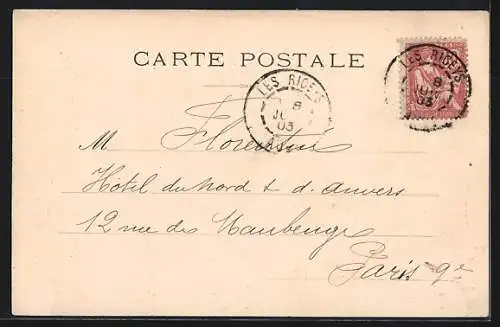 CARTE POSTALE
LES RICEYS
8
03
LES RICEYS
8
03
M Florentin
Hôtel du Nord & d. Anvers
12 rue des Maubeuge
Paris 9e